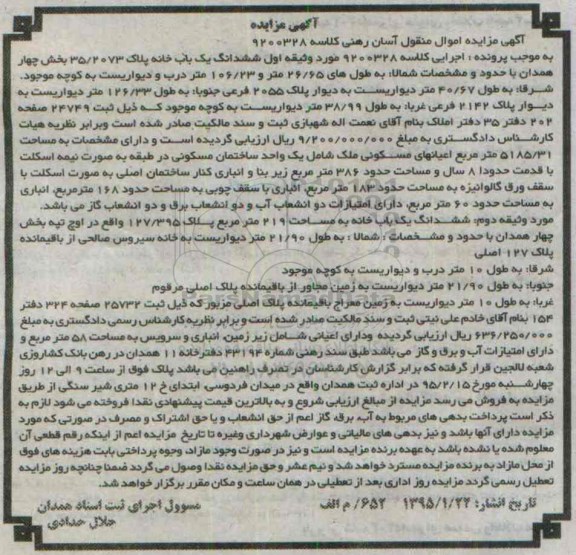 آگهی مزایده
آگهی مزایده اموال منقول آسان رهنی کلاسه ۹۲۰۰۳۲۸
به موجب پرونده : اجرایی کلاسه ۹۲۰۰۳۲۸ مورد وثیقه اول ششدانگ یک باب خانه پلاک ۳۵/۲۰۷۳ بخش چهار
همدان با حدود و مشخصات شمالا: به طول های ۲۶/۶۵ متر و ۱۰۶/۲۳ متر درب و دیواریست به کوچه موجود.
شرقا: به طول ۴۰/۶۷ متر دیواریست به دیوار پلاک ۲۰۵۵ فرعی جنوبا: به طول ۱۲۶/۳۳ متر دیواریست به
دیوار پلاک ۲۱۴۲ فرعی غربا: به طول ۳۸/۹۹ متر دیواریست به کوچه موجود که ذیل ثبت ۲۴۷۴۹ صفحه
۲۰۲ دفتر ۳۵ دفتر املاک بنام آقای نعمت اله شهبازی ثبت و سند مالکیت صادر شده است وبرابر نظریه هیات
کارشناس دادگستری به مبلغ ۹/۲۰۰/۰۰۰/۰۰۰ ریال ارزیابی گردیده است و دارای مشخصات به مساحت
۵۱۸۵/۳۱ متر مربع اعیانهای مسکونی ملک شامل یک واحد ساختمان مسکونی در طبقه به صورت نیمه اسکلت
با قدمت حدودا ۸ سال و مساحت حدود ۳۸۶ متر مربع زیر بنا و انباری کنار ساختمان اصلی به صورت اسکلت با
سقف ورق گالوانیزه به مساحت حدود ۱۸۳ متر مربع، انباری با سقف چوبی به مساحت حدود ۱۶۸ مترمربع، انباری
به مساحت حدود ۶۰ متر مربع، دارای امتیازات دو انشعاب آب و دو انشعاب برق و دو انشعاب گاز می باشد.
مورد وثیقه دوم: ششدانگ یک باب خانه به مساحت ۲۱۹ متر مربع پلاک ۱۲۷/۳۹۵ واقع در اوچ تپه بخش
چهار همدان با حدود و مشخصات : شمالا : به طول ۲۱/۹۰ متر دیواریست به خانه سیروس صالحی از باقیمانده
پلاک ۱۲۷ اصلی
شرقا: به طول ۱۰ متر درب و دیواریست به کوچه موجود
جنوبا: به طول ۲۱/۹۰ متر دیواریست به زمین مجاور از باقیمانده پلاک اصلی مرقوم
غربا: به طول ۱۰ متر دیواریست به زمین معراج باقیمانده پلاک اصلی مزبور که ذیل ثبت ۲۵۷۳۲ صفحه ۳۲۴ دفتر
۱۵۴ بنام آقای خادم علی نیتی ثبت و سند مالکیت صادر شده است و برابر نظریه کارشناس رسمی دادگستری به مبلغ
۶۳۶/۲۵۰/۰۰۰ ریال ارزیابی گردیده ودارای اعیانی شامل زیر زمین، انباری و سرویس به مساحت ۵۸ متر مربع و
دارای امتیازات آب و برق و گاز می باشد طبق سند رهنی شماره ۴۳۱۹۴ دفترخانه ۱۱ همدان در رهن بانک کشاورزی
شعبه لالجین قرار گرفته که برابر گزارش کارشناسان در تصرف راهنین می باشد پلاک فوق از ساعت ۹ الی ۱۲ روز
چهارشنبه مورخ ۹۵/۲/۱۵ در اداره ثبت همدان واقع در میدان فردوسی ابتدای خ ۱۲ متری شیر سنگی از طریق
مزایده به فروش می رسد مزایده از مبالغ ارزیابی شروع و به بالاترین قیمت پیشنهادی نقدا فروخته می شود لازم به
ذکر است پرداخت بدهی های مربوط به آب، برق، گاز اعم از حق انشعاب و یا حق اشتراک و مصرف در صورتی که مورد
مزایده دارای آنها باشد و نیز بدهی های مالیاتی و عوارض شهرداری وغیره تا تاریخ مزایده اعم از اینکه رقم قطعی آن
معلوم شده یا نشده باشد به عهده برنده مزایده است و نیز در صورت وجود مازاد، وجوه پرداختی بابت هزینه های فوق
از محل مازاد به برنده مزایده مسترد خواهد شد و نیم عشر و حق مزایده نقدا وصول می گردد ضمنا چنانچه روز مزایده
تعطیل رسمی گردد مزایده روز اداری بعد از تعطیلی در همان ساعت و مکان مقرر برگزار خواهد شد.
تاریخ انتشار: ۱۳۹۵/۱/۲۴ ۶۵۲/ م الف
مسوول اجرای ثبت اسناد همدان
جلال حدادی